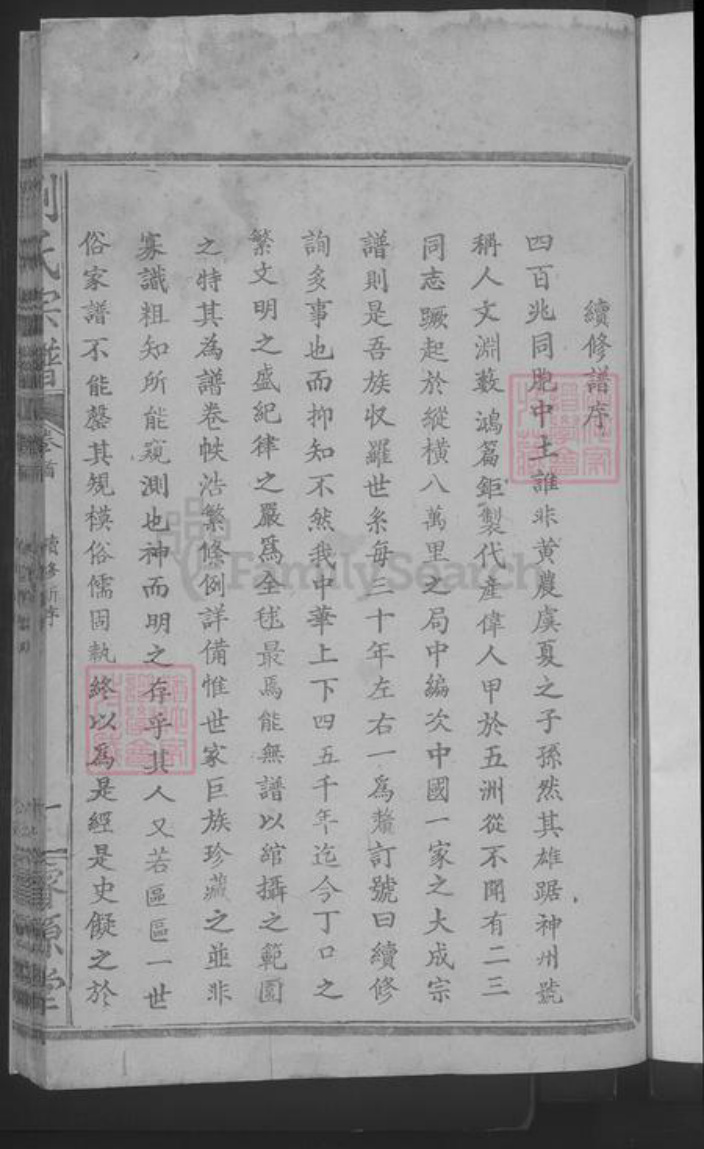 續修譜序
四百兆同胞中土誰非黃農虞夏之子孫然其雄踞神州號
稱人文淵藪鴻篇鉅製代產偉人甲於五洲從不聞有二三
同志蹶起於縱橫八萬里之局中編次中國一家之大成宗
譜則是吾族收羅世系每三十年左右一為釐訂號曰續修
詢多事也而抑知不然我中華上下四五千年迄今丁口之
繁文明之盛紀律之嚴爲全毬最爲能無譜以綰攝之範圍
之特其為譜卷帙浩繁條例詳備惟世家巨族珍藏之並非
寡識粗知所能窺測也神而明之存乎其人又若區區一世
俗家譜不能罄其規模俗儒固執終以為是經是史儗之於
劉氏宗譜
卷首
續修新序
一
FamilySearch